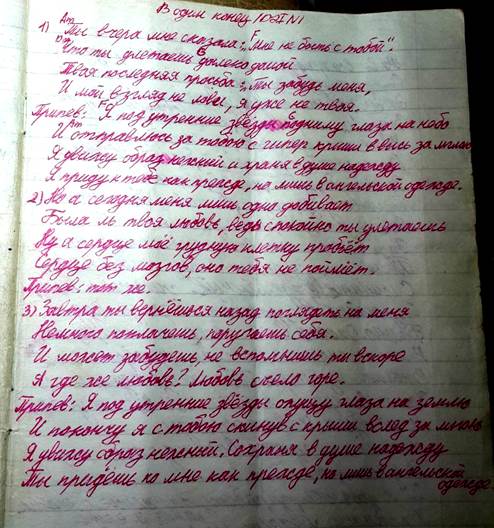 В один конец
1) Am Ты вчера мне сказала: „F Мне не быть с тобой".
Dm Что ты улетаешь G далеко домой
Твоя последняя просьба: „Ты забудь меня,
И мой взгляд не лови, я уже не твоя.
Припев: F Я под утренние звёзды подниму глаза на небо
И отправлюсь за тобою с гипер крыши ввысь за мглою
Я увижу образ нежний и храня в душе надежду
Я приду к тебе как прежде, но лишь в ангельской одежде.
2) Но а сегодня меня лишь одно добивает
Была ль твоя любовь, ведь спокойно ты улетаешь
Ну а сердце моё грудную клетку пробьёт
Сердце без мозгов, оно тебя не поймёт.
Припев: тот же.
3) Завтра ты вернёшься назад поглядеть на меня
Немного поплачешь, поругаешь себя.
И может забудешь не вспомнишь ты вскоре
А где же любовь? Любовь съело горе.
Припев: Я под утренние звёзды опущу глаза на землю
И покончу я с тобою скинув с крыши вслед за мною
Я увижу образ нежный. Сохраня в душе надежду
Ты придёшь ко мне как прежде, но лишь в ангельской
одежде